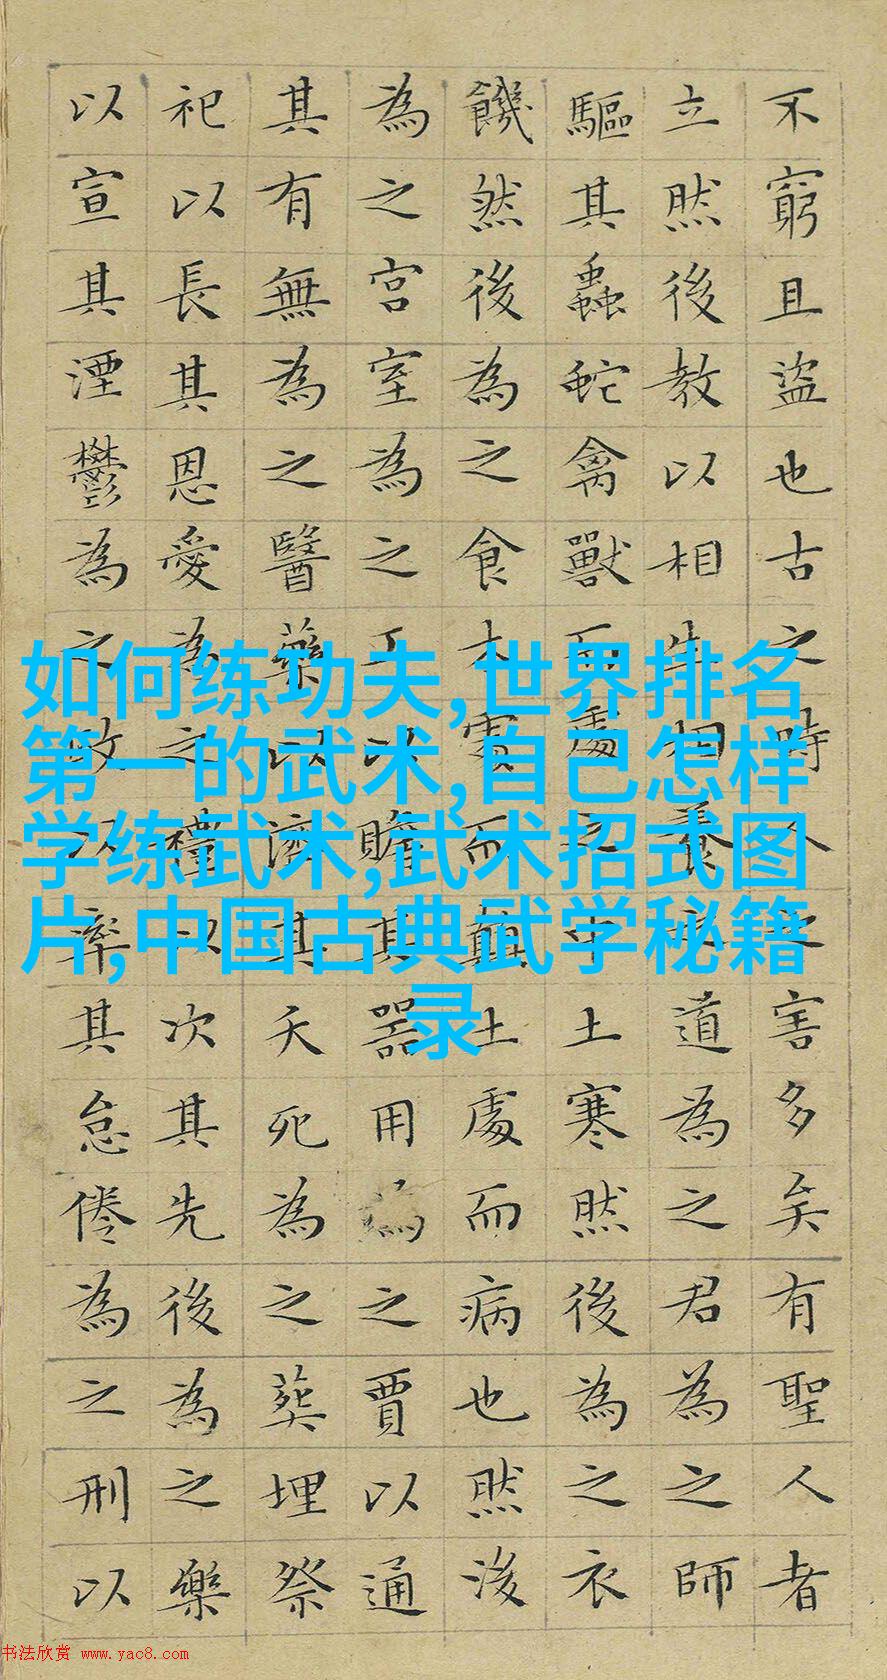 不窮且盜也古之時人之害多矣有聖人者
立然後教以相生相養道為之君為之師
驅其蟲蛇禽獸而處之中土寒然後為之衣
饑然後為之食木處而顛土處而病也然後
為之宮室為之工以贍其器用為之賈以通
其有無為之醫藥以濟其夭死為之葬埋祭
祀以長其恩愛為之禮以次其先後為之樂
以宣其湮鬱為之政以率其怠倦為之刑以
如何练功夫,世界排名
第一的武术,自己怎样
学练武术,武术招式图
片,中国古典武学秘籍
录
书法欣赏 www.yac8.com